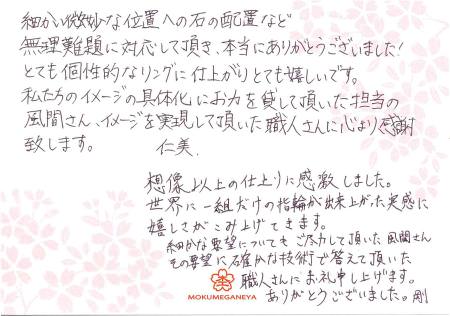 細かい微妙な位置への石の配置など
無理難題に対応して頂き、本当にありがとうございました!
とても個性的なリングに仕上がりとても嬉しいです。
私たちのイメージの具体化にお力を貸して頂いた担当の
風間さん、イメージを実現して頂いた職人さんに心より感謝
致します。 仁美.
想像以上の仕上りに感激しました。
世界に一組だけの指輪が出来上がった実感に
嬉しさがこみ上げてきます。
細かな要望についてもご尽力して頂いた風間さん
その要望に確かな技術で答えて頂いた
職人さんにお礼申し上げます。
ありがとうございました。剛
MOKUMEGANEYA